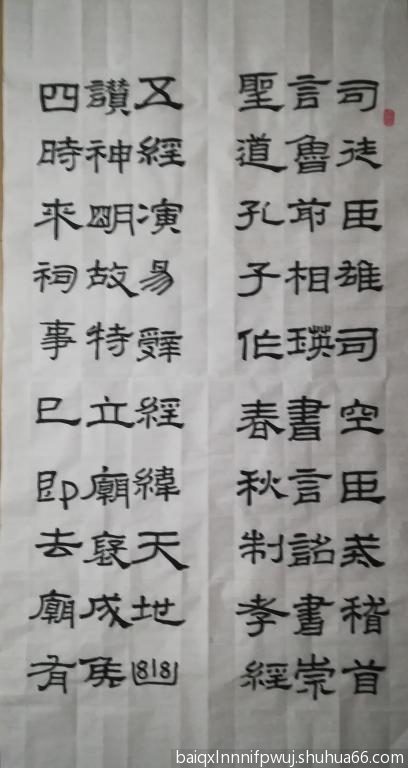 司徒臣雄司空臣戒稽首
言魯前相瑛書言詔書崇
聖道孔子作春秋制孝經
五經演易辭經緯天地幽
讚神明故特立廟褒成侯
四時來祠事已即去廟有
baiqxlnnnifpwuj.shuhua66.com